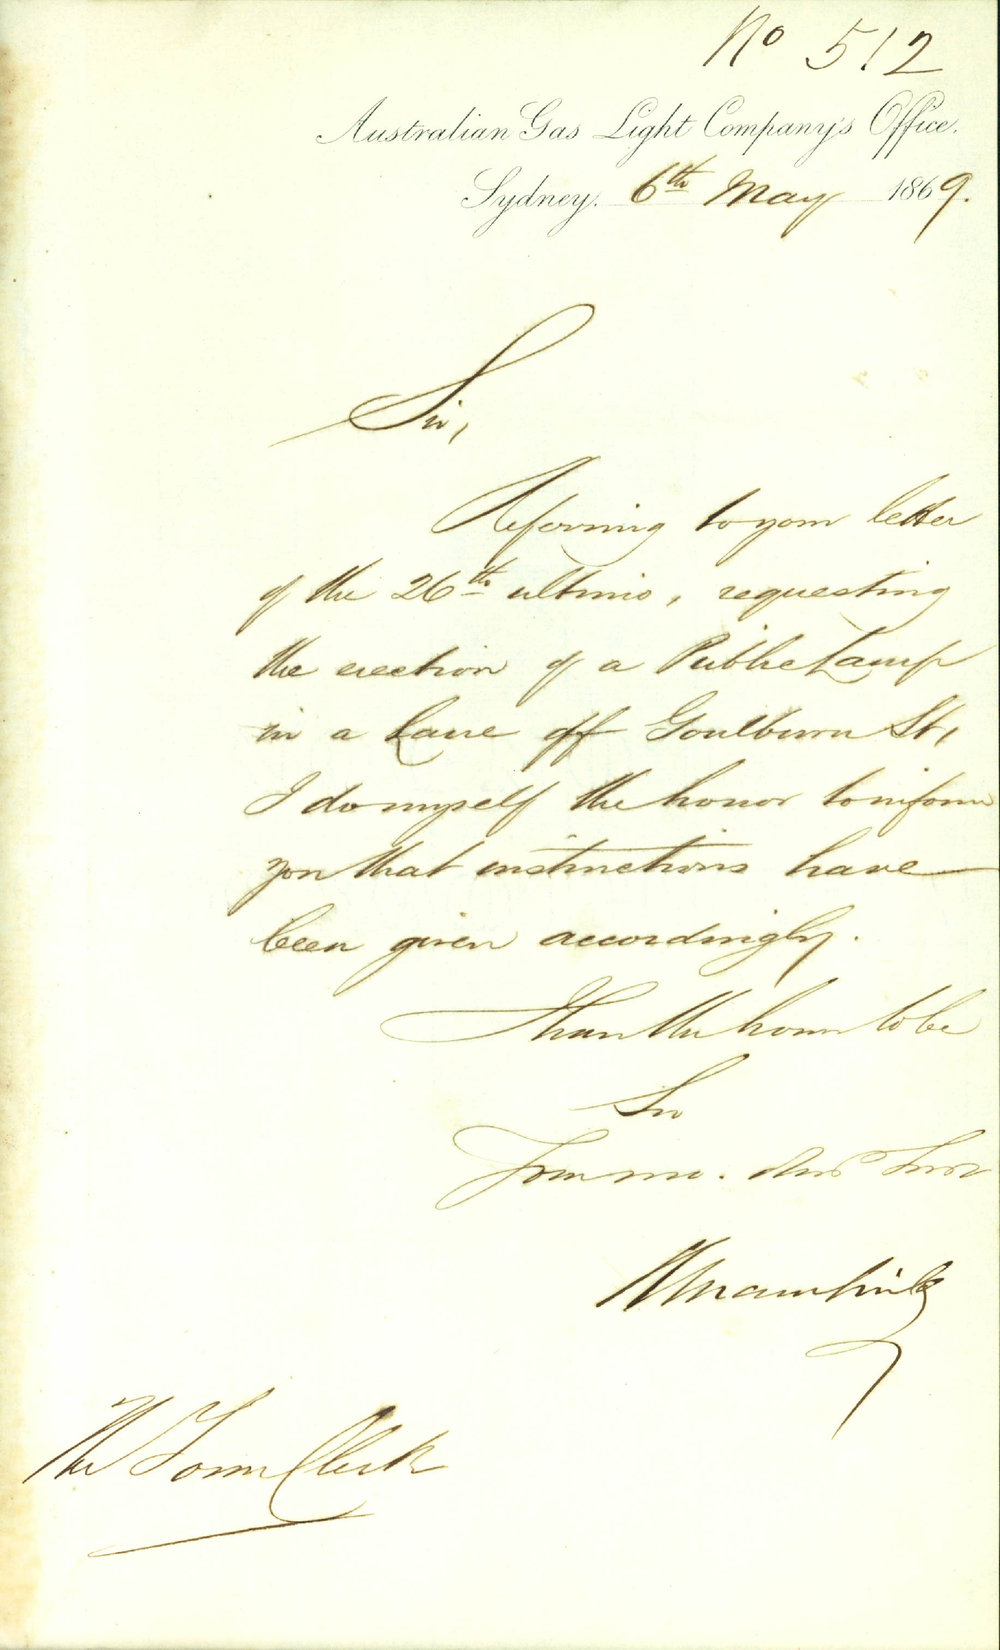 No 512
Australian Gas Light Company's Office.
Sydney. 6th May 1869.
Sir,
Referring to your letter
of the 26th ultimo, requesting
the erection of a Public Lamp
in a Lane off Goulburn St,
I do myself the honor to inform
you that instructions have
been given accordingly.
I have the honor to be
Sir
Your mo. obt Serv
The Town Clerk